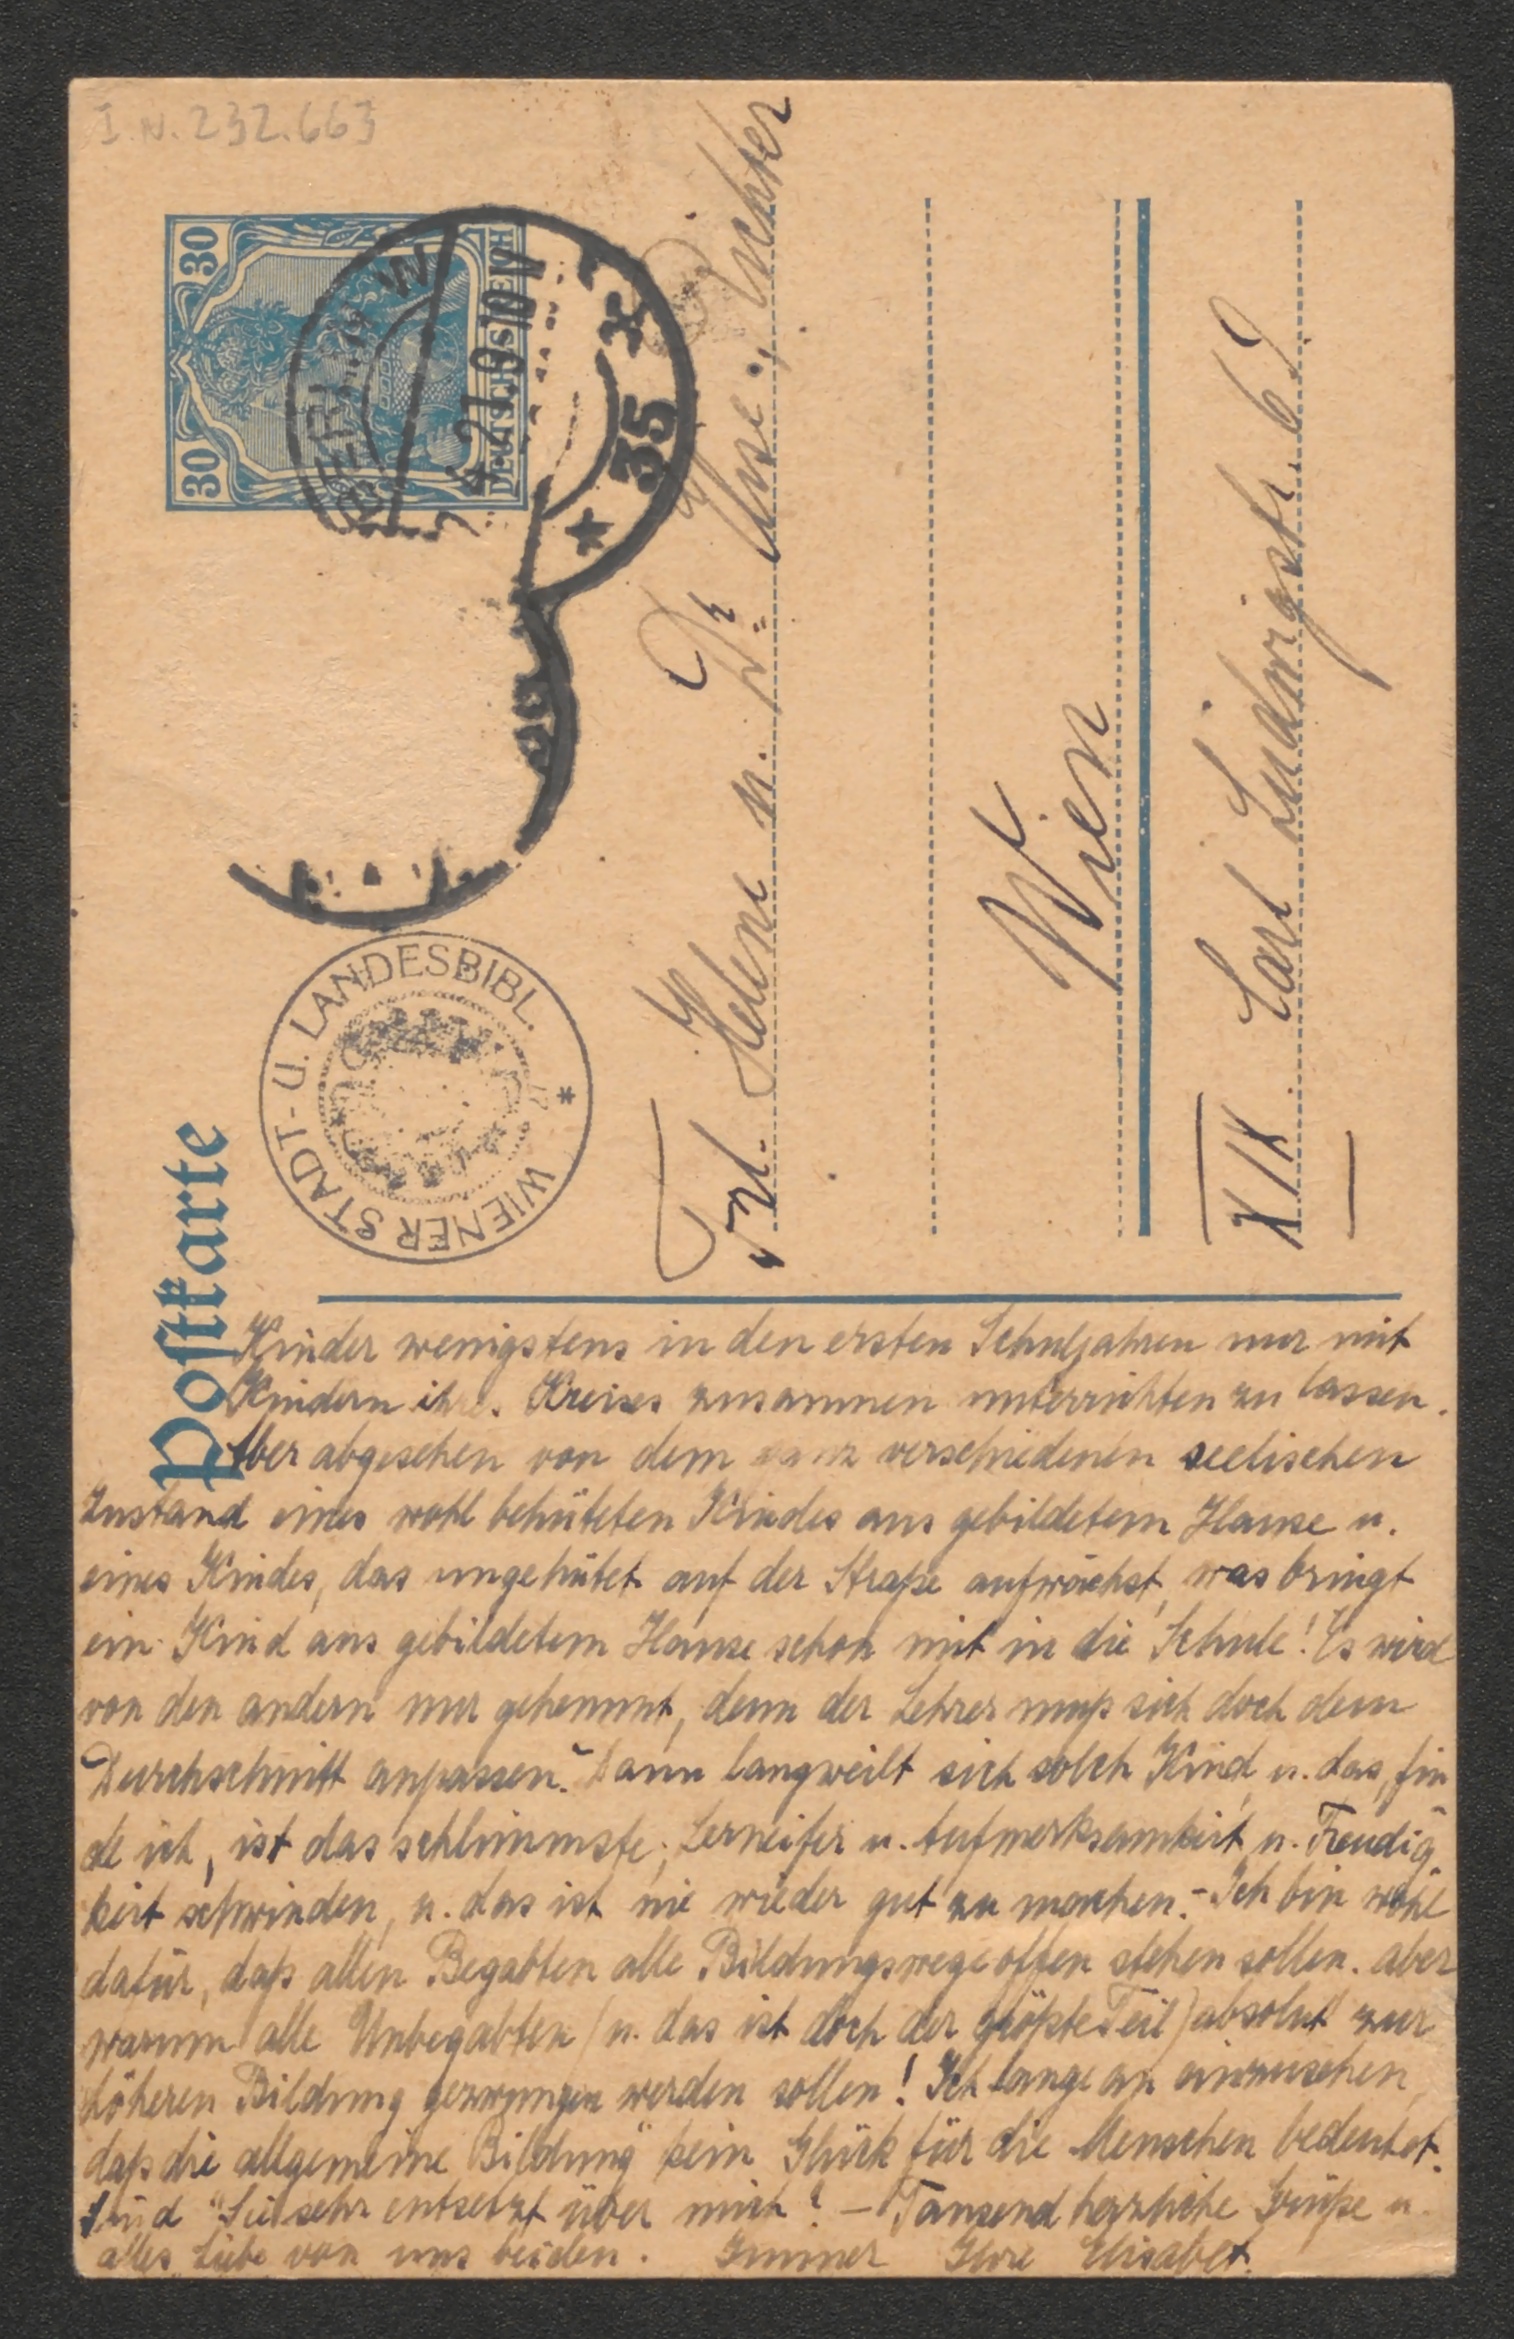 I.N. 232.663
Postkarte
30 30
DEUTSCHES REICH
BERLIN W
4.21.9-10 V
* 35 *
WIENER STADT- U. LANDESBIBL. *
Frl. Helene u. Dr. Elise Richter
Wien
XIX Carl Ludwigstr. 69
Kinder wenigstens in den ersten Schuljahren nur mit
Kindern ihres Kreises zusammen unterrichten zu lassen.
Aber abgesehen von dem ganz verschiedenen seelischen
Zustand eines wohl behüteten Kindes aus gebildetem Hause u.
eines Kindes, das ungehütet auf der Straße aufwächst, was bringt
ein Kind aus gebildetem Hause schon mit in die Schule! Es wird
von den andern nur gehemmt, denn der Lehrer muß sich doch dem
Durchschnitt anpassen. Dann langweilt sich solch Kind, u. das, fin
de ich, ist das schlimmste; Lerneifer u. Aufmerksamkeit u. Freudig
keit schwinden, u. das ist nie wieder gut zu machen. - Ich bin wohl
dafür, daß allen Begabten alle Bildungswege offen stehen sollen. aber
warum alle Unbegabten (u. das ist doch der größte Teil) absolut zur
höheren Bildung gezwungen werden sollen! Ich fange an einzusehen,
daß die allgemeine Bildung kein Glück für die Menschen bedeutet.
Sind Sie sehr entsetzt über mich? – Tausend herzliche Grüße u.
alles Liebe von uns beiden. Immer Ihre Elisabet.